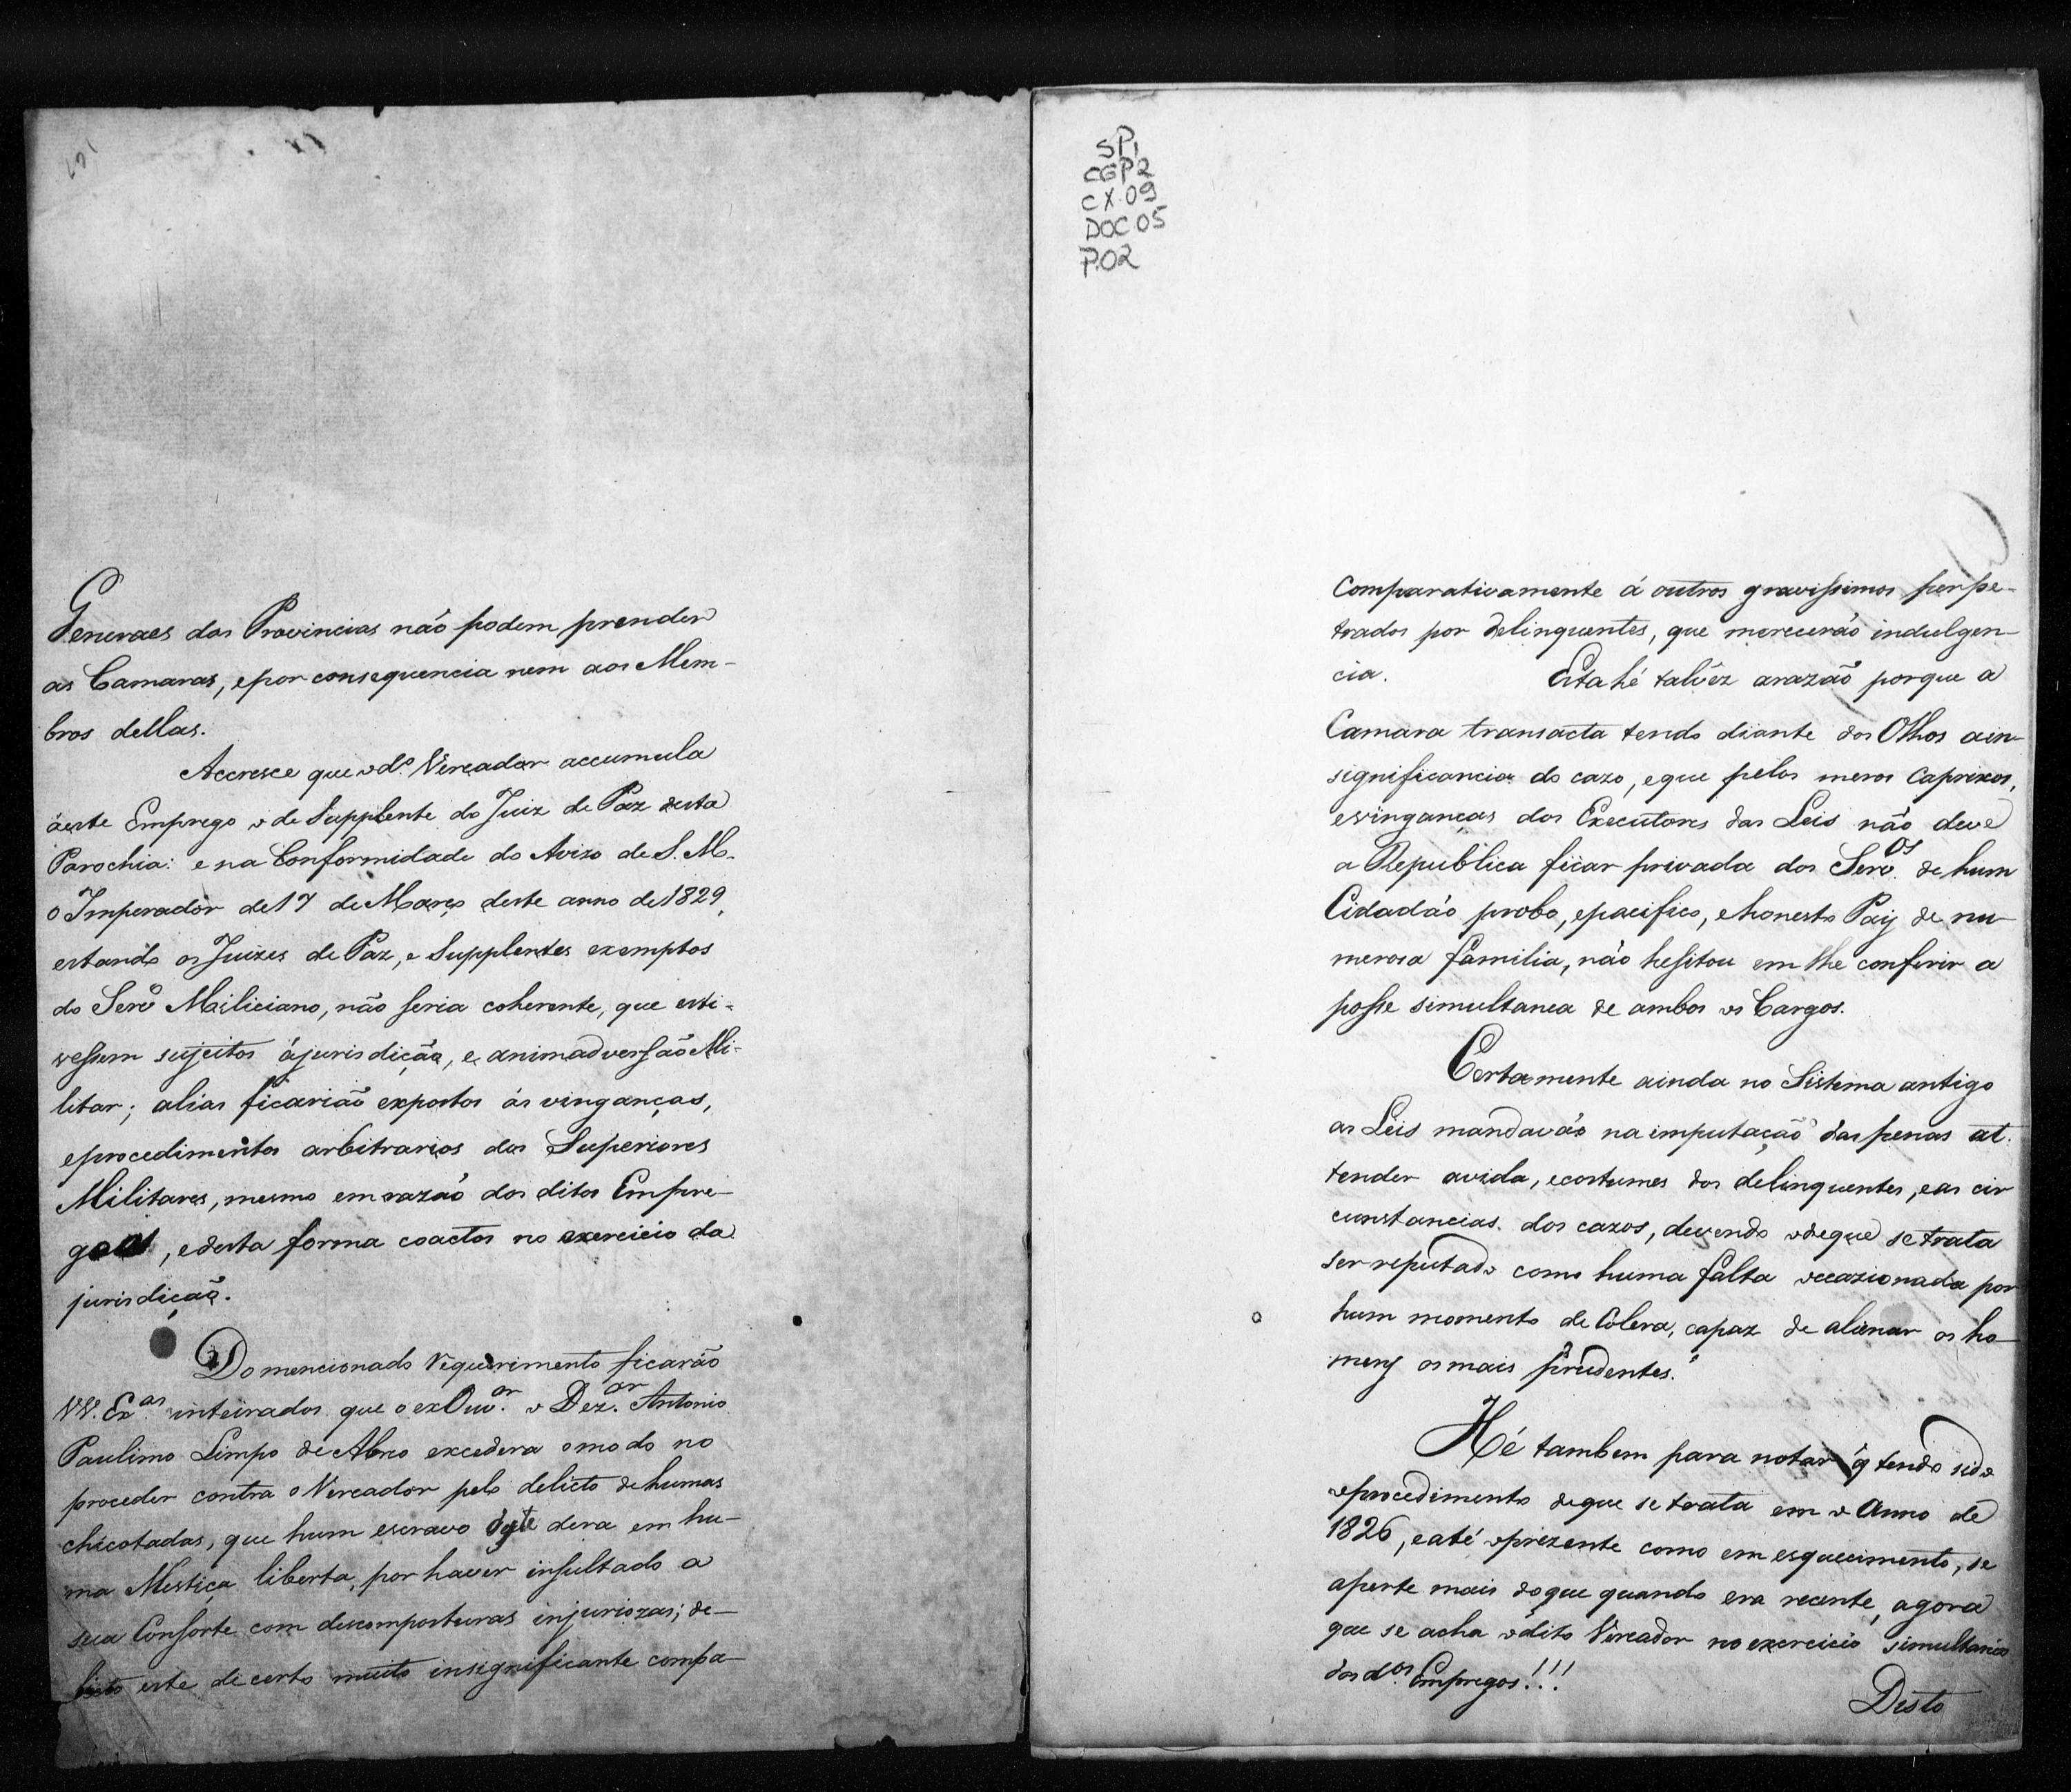 Generaes das Provincias não podem prender
as Camaras, e por consequencia nem aos Mem-
bros dellas.
Accresce que o d.º Vereador accumula
áeste Emprego o de Supplente do Juiz de Paz desta
Parochia: e na Conformidade do Avizo de S. M.
o Imperador de 17 de Março deste anno de 1829,
estando os Juizes de Paz, e Supplentes exemptos
do Servº Miliciano, não seria coherente, que esti-
vessem sujeitos ájurisdicção, e animadversão Mi-
litar; alias ficarião expostos ás vinganças,
eprocedimentos arbitrarios dos Superiores
Militares, mesmo em razão dos ditos Empre-
gos, e desta forma coactos no exercicio da
jurisdicção.
Do mencionado requerimento ficarão
VV. Ex.as inteirados que o ex Ouv.or o Dez.or Antonio
Paulino Limpo de Abreo excedera o modo no
proceder contra o Vereador pelo delicto de humas
chicotadas, que hum escravo deste dera em hu-
ma Mestiça liberta, por haver insultado a
sua Consorte com descomposturas injuriozas; de-
licto este de certo muito insignificante compa-
SP1
CGP2
CX.09
DOC 05
P.02
Comparativamente á outros gravissimos perpe-
trados por delinquentes, que merecerão indulgen-
cia. Esta hé talvez arazão porque a
Camara transacta tendo diante dos Olhos ain-
significancia do cazo, eque pelos meros Caprixos,
evinganças dos Executores das Leis não deve
a Republica ficar privada dos Serv.os de hum
Cidadão probo, epacifico, ehonesto Pay de nu-
merosa familia, não hesitou em lhe conferir a
posse simultanea de ambos os Cargos.
Certamente ainda no Sistema antigo
as Leis mandavão na imputação das penas at-
tender avida, ecostumes dos delinquentes, eas cir
cunstancias dos cazos, devendo odeque se trata
ser reputado como huma falta occazionada por
hum momento de Colera, capaz de alienar os ho-
mens os mais prudentes.
Hé tambem para notar q̃ tendo sido
oprocedimento deque se trata em o Anno de
1826, eaté oprezente como em esquecimento, se
aperte mais doque quando era recente, agora
que se acha odito Vereador no exercicio simultanio
dos d.os Empregos!!!
Disto